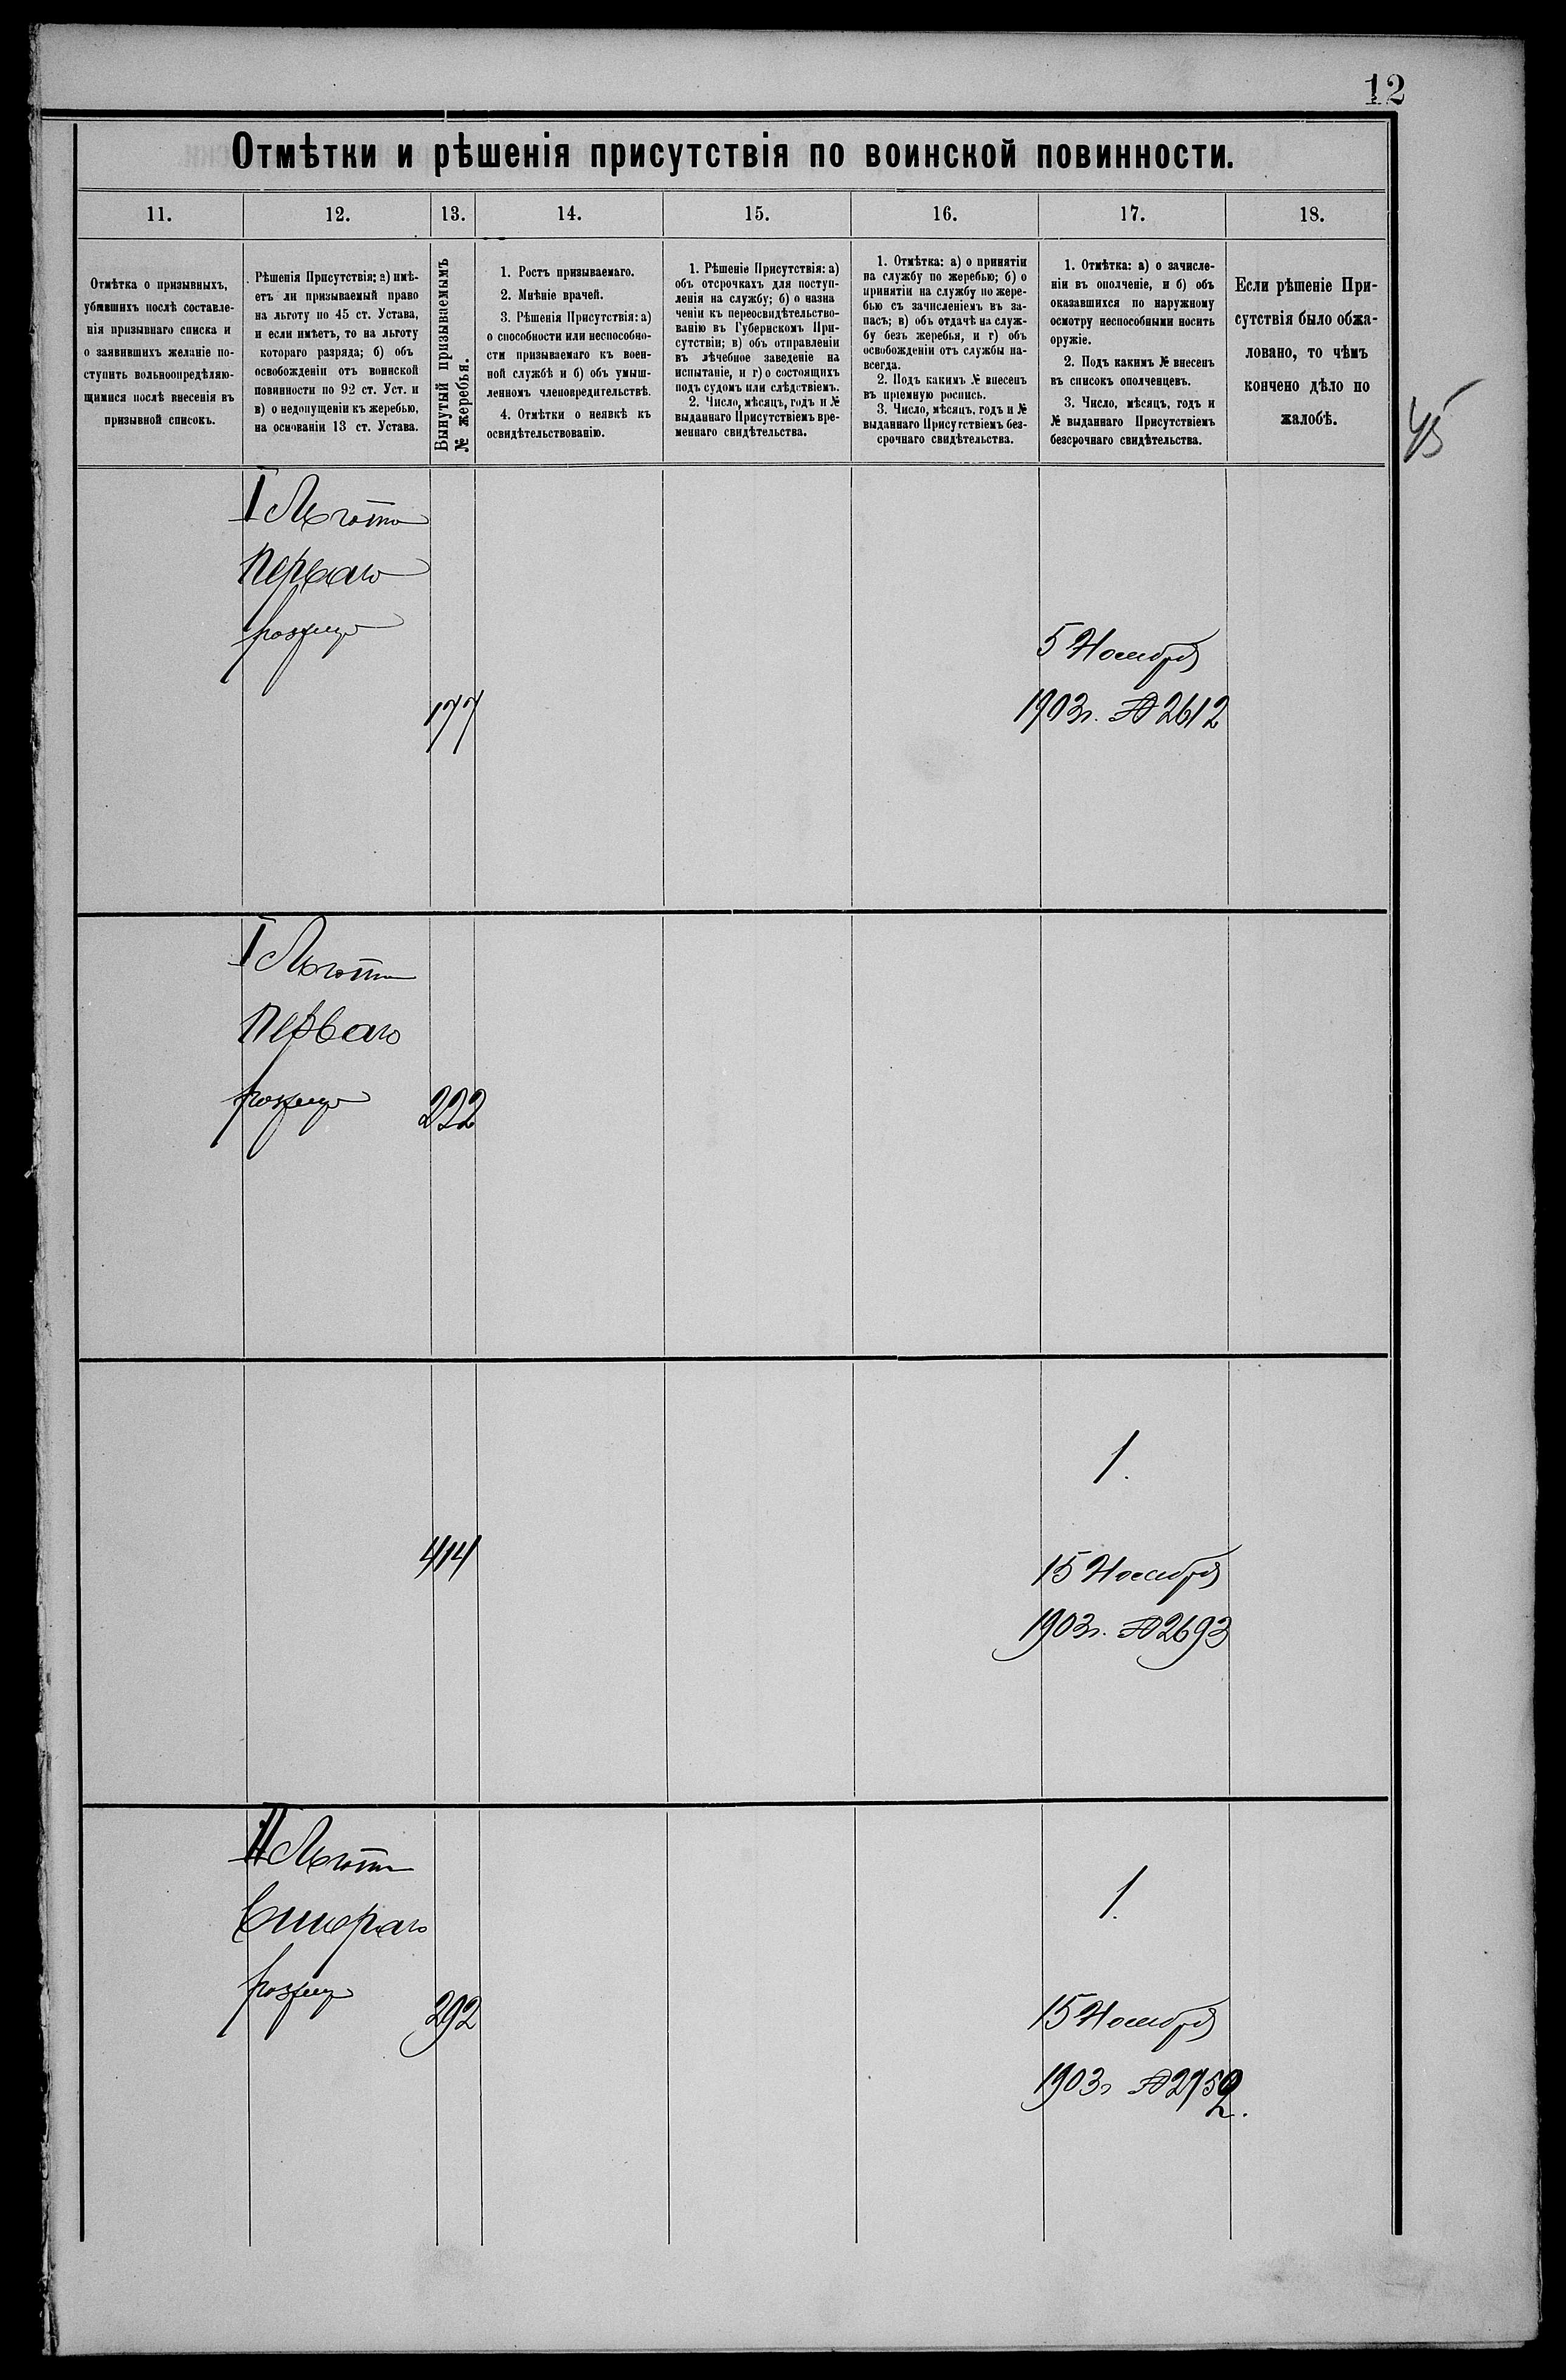 12
Отмѣтки и рѣшенія присутствія по воинской повинности.
11.
12.
13.
14.
15.
16.
17.
18.
Отмѣтка о призывныхъ,
убывшихъ послѣ составле-
нія призывнаго списка и
о заявившихъ желаніе по-
ступить вольноопредѣляю-
щимися послѣ внесенія въ
призывной списокъ.
Рѣшенія Присутствія: а) имѣ-
етъ ли призываемый право
на льготу по 45 ст. Устава,
и если имѣетъ, то на льготу
котораго разряда; б) объ
освобожденіи отъ воинской
повинности по 92 ст. Уст. и
в) о недопущеніи къ жеребью,
на основаніи 13 ст. Устава.
Вынутый призываемымъ
№ жеребья.
1. Ростъ призываемаго.
2. Мнѣніе врачей.
3. Рѣшенія Присутствія: а)
о способности или неспособно-
сти призываемаго къ воен-
ной службѣ и б) объ умыш-
ленномъ членовредительствѣ.
4. Отмѣтки о неявкѣ къ
освидѣтельствованію.
1. Рѣшеніе Присутствія: а)
объ отсрочкахъ для поступ-
ленія на службу; б) о назна
ченіи къ переосвидѣтельство-
ванію въ Губернскомъ При-
сутствіи; в) объ отправленіи
въ лѣчебное заведеніе на
испытаніе, и г) о состоящихъ
подъ судомъ или слѣдствіемъ.
2. Число, мѣсяцъ, годъ и №
выданнаго Присутствіемъ вре-
меннаго свидѣтельства.
1. Отмѣтка: а) о принятіи
на службу по жеребью; б) о
принятіи на службу по жере-
бью съ зачисленіемъ въ за-
пасъ; в) объ отдачѣ на служ-
бу безъ жеребья, и г) объ
освобожденіи отъ службы на-
всегда.
2. Подъ какимъ № внесенъ
въ пріемную роспись.
3. Число, мѣсяцъ, годъ и №
выданнаго Присутствіемъ без-
срочнаго свидѣтельства.
1. Отмѣтка: а) о зачисле-
ніи въ ополченіе, и б) объ
оказавшихся по наружному
осмотру неспособными носить
оружіе.
2. Подъ какимъ № внесенъ
въ списокъ ополченцевъ.
3. Число, мѣсяцъ, годъ и
№ выданнаго Присутствіемъ
безсрочнаго свидѣтельства.
Если рѣшеніе При-
сутствія было обжа-
ловано, то чѣмъ
кончено дѣло по
жалобѣ.
45
I Льгота
перваго
разряда
177
5 Ноября
1903г. № 2612
I Льгота
перваго
разряда
222
414
1.
15 Ноября
1903г. № 2693
II Льгота
втораго
разряда
292
1.
15 Ноября
1903г № 2752.